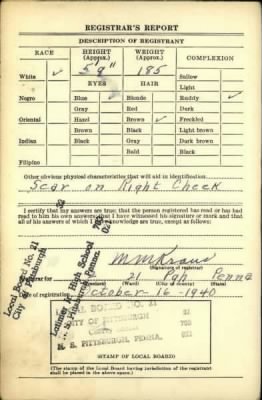 REGISTRAR'S REPORT
DESCRIPTION OF REGISTRANT
RACE HEIGHT (Approx.) WEIGHT (Approx.) COMPLEXION
White ✓ 5'9" 185 Sallow
EYES HAIR Light
Negro Blue ✓ Blonde Ruddy ✓
Gray Red Dark
Oriental Hazel Brown ✓ Freckled
Brown Black Light brown
Indian Black Gray Dark brown
Bald Black
Filipino
Other obvious physical characteristics that will aid in identification
Scar on Right Cheek
I certify that my answers are true; that the person registered has read or has had
read to him his own answers; that I have witnessed his signature or mark and that
all of his answers of which I have knowledge are true, except as follows:
Local Board No. 21
City of Pittsburgh
Latimer High School
Pittsburgh, Penna.
(Signature of registrar)
21 Pgh Penna
(City or county)
Date of registration October 16 - 1940
LOCAL BOARD NO. 21
CITY OF PITTSBURGH
N. S. PITTSBURGH, PENNA.
(STAMP OF LOCAL BOARD)
(The stamp of the Local Board having jurisdiction of the registrant
shall be placed in the above space.)